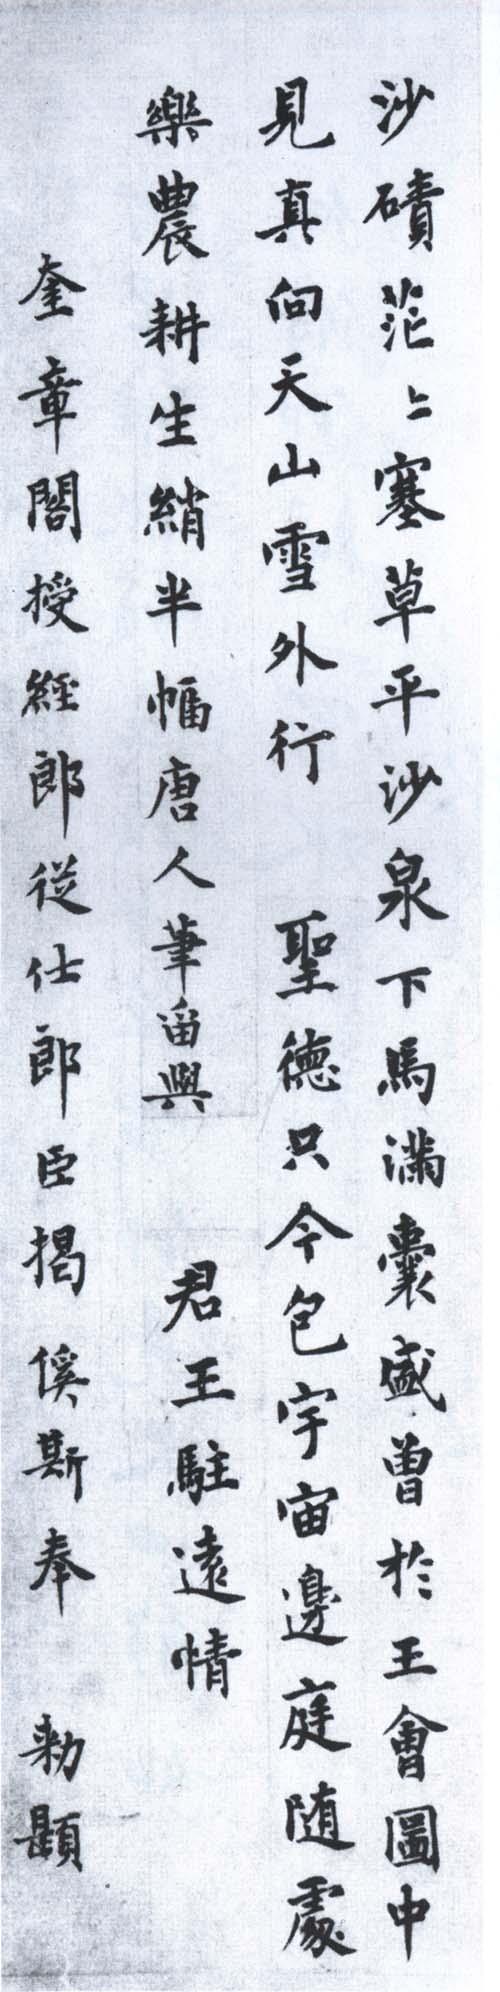 沙磧茫〻塞草平沙泉下馬滿囊盛曾於王會圖中
見真向天山雪外行 聖德只今包宇宙邊庭随處
樂農耕生綃半幅唐人筆留與 君王駐遠情
奎章閣授經郎從仕郎臣揭傒斯奉 勑題